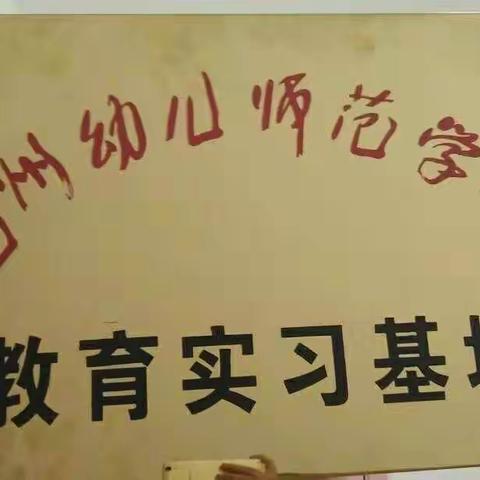 幼儿师范学
教育实习基